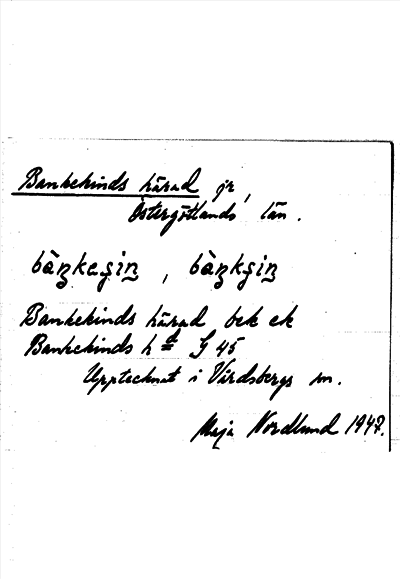 Bankekinds härad jr,
Östergötlands län.
bàŋkeʂin, bàŋkʂin
Bankekinds härad bek ek
Bankekinds hd G 45
Upptecknat i Vårdsbergs sn.
Maja Nordlund 1947.